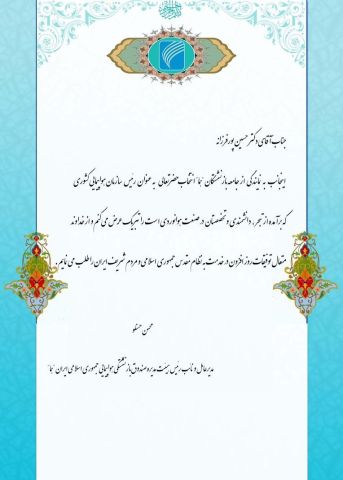 جناب آقای دکتر حسین پورفرزانه
اینجانب به نمایندگی از جامعه بازنشستگان "هما" انتخاب حضرتعالی به عنوان رئیس سازمان هواپیمایی کشوری
که برآمده از تجربه، دانشمندی و تخصصتان در صنعت هوانوردی است را تبریک عرض می کنم و از خداوند
متعال توفیقات روز افزون در خدمت به نظام مقدس جمهوری اسلامی و مردم شریف ایران را طلب می نمایم.
محسن
مدیرعامل و نائب رئیس هیئت مدیره صندوق بازنشستگی هواپیمایی جمهوری اسلامی ایران "هما"